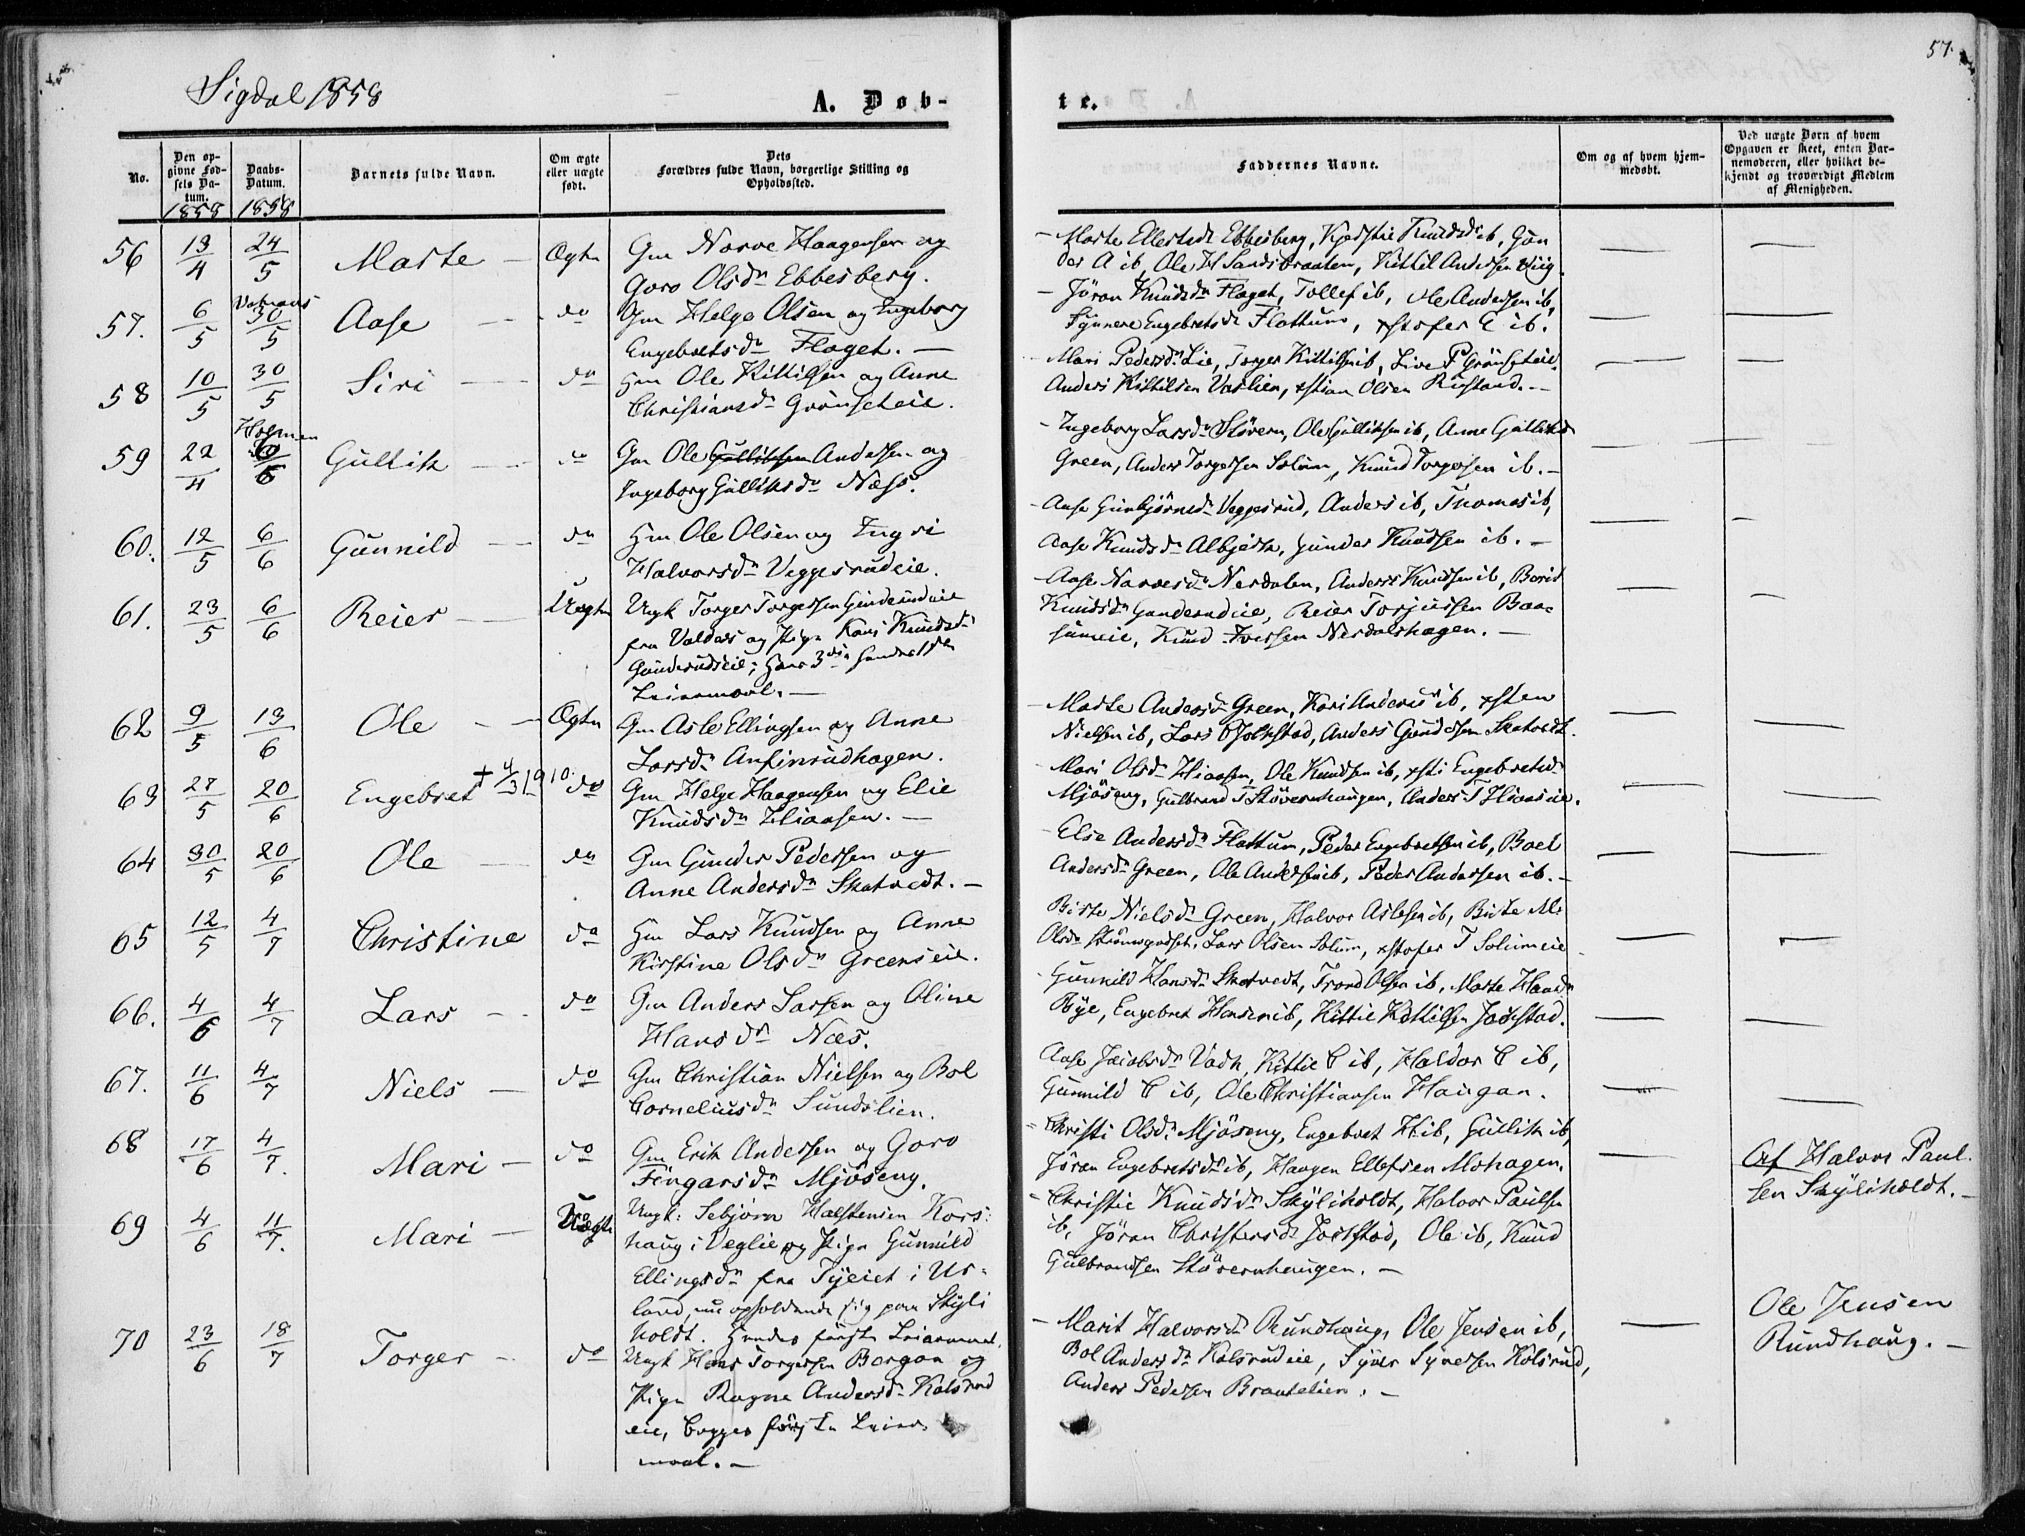 57.
Sigdal 1858
A. Døb-
te.
No.
Den op-
givne Fød-
sels Da-
tum.
1858
Daabs-
Datum.
1858
Barnets fulde Navn.
Om ægte
eller uægte
født.
Dets
Forældres fulde Navn, borgerlige Stilling og
Opholdssted.
Faddernes Navne.
Om og af hvem hjem-
medøbt.
Ved uægte Børn af hvem
Opgaven er skeet, enten Bar-
nemoderen, eller hvilket be-
kjendt og troværdigt Medlem
af Menigheden.
56 13/4 24/5 Marte — Ægte
Gm Narve Haagensen og
Goro Olsdr Ebbesberg.
Marte Ellefsdr Ebbesberg, Kjerstie Knudsdr ib, Gun
der A ib, Ole H Sandsbraaten, Kittil Andersen
57. 6/5 30/5 Aase — do
Gm Helge Olsen og Ingeborg
Engebretsdr Flaget. —
Jøran Knudsdr Flaget, Tollef ib, Ole Andersen ib,
Synnere Engebretsdr Flattum, xstofer E ib.
58 10/5 30/5 Siri — do
Hm Ole Kittilsen og Anne
Christiansdr Grønseteie.
Mari Pedersdr Lie, Torger Kittilsen ib, Live P Grønseteie
Anders Kittilsen Vaslien, xstian Olsen
Holmen
59 22/4 6 Gullik — do
Gm Ole Gulliksen Andersen og
Ingeborg Gulliksdr Næss.
Ingeborg Larsdr Støvern, Ole Gulliksen ib, Anne Gulliksdr
Green, Anders Torgersen Solum, Knud Torgersen ib. —
60. 12/5 6/6 Gunnild — do
Hm Ole Olsen og Ingri
Halvorsdr Veggesrudeie.
Aase Gunbjørnsdr Veggesrud, Anders ib, Thomas ib,
Aase Knudsdr Albjerk, Gunder Knudsen ib. —
61. 23/5 6/6 Reier — Uægte
Ungk Torger Torgersen Gunderudeie
fra Valders og Pige Kari Knudsdr
Gunderudseie; Hans 3die hendes 1ste
Leiermaal. —
Aase Narvesdr Nerdalen, Anders Knudsen ib, Borit
Knudsdr Gunderudeie, Reier Torjussen Baa-
sumeie, Knud Iversen Nerdalshagen. —
62 9/5 13/6 Ole — Ægte
Gm Asle Ellingsen og Anne
Larsdr Anfinrudhagen.
Marte Andersdr Green, Kari Andersdr ib, xsten
Nielsen ib, Lars, Anders Gundersen Skatvedt.
63 27/5 20/6 Engebret + 4/3 1910. do
Gm Helge Haagensen og Elie
Knudsdr Hiaasen. —
Mari Olsdr Hiaasen, Ole Knudsen ib, xsti Engebretsdr
Mjøseng, Gulbrand T Støvernhaugen, Anders T Hiaaseie.
64 30/5 20/6 Ole — do
Gm Gunder Pedersen og
Anne Andersdr Skatvedt. —
Else Andersdr Flattum, Peder Engebretsen ib, Boel
Andersdr Green, Ole Andersen ib, Peder Andersen ib. —
65 12/5 4/7 Christine do
Hm Lars Knudsen og Anne
Kirstine Olsdr Greenseie.
Birte Nielsdr Green, Halvor Aslesen ib, Birte M.
Olsdr Strømsgodset, Lars Olsen Solum, xstofer T Solumeie
66. 4/6 4/7 Lars — do
Gm Anders Larsen og Oline
Hansdr Næs.
Gunnild Hansdr Skatvedt, Trond Olsen ib, Marte Hansdr
Bye, Engebret Hansen ib, Kittil Kittilsen Jokstad.
67. 11/6 4/7 Niels — do
Gm Christian Nielsen og Bol
Corneliusdr Sundslien.
Aase Jacobsdr, Kittil C ib, Haldor C ib,
Gunnild C ib, Ole Christiansen Haugan.
68 17/6 4/7. Mari — do
Gm Erik Andersen og Goro
Fingarsdr Mjøseng.
Christi Olsdr Mjøseng, Engebret H ib, Gullik ib,
Jøran Engebretsdr ib, Haagen Ellefsen Mohagen.
69 4/6 11/7. Mari — Uægte
Ungk: Sebjørn Halstensen Kors-
haug i Veglie og Pige Gunnild
Ellingsdr fra Tyeiet i Ur-
land, nu opholdende sig paa Skyli
holdt. Hendes første Leiermaal.
Christie Knudsdr Skyliholdt, Halvor Paulsen
ib, Jøran Christensdr Jokstad, Ole ib, Knud
Gulbrandsen Støvernhaugen. —
Af Halvor Paul-
sen Skyliholdt. —
70 23/6 18/7 Torger — do
Ungk Hans Torgersen Bergan og
Pige Ragne Andersdr Kolsrud
eie, begges første Leier-
maal. —
Marit Halvorsdr Rundhaug, Ole Jensen ib,
Bol Andersdr Kolsrudeie, Syver Syversen Kolsrud,
Anders Pedersen Braatelien. —
Ole Jensen
Rundhaug. —